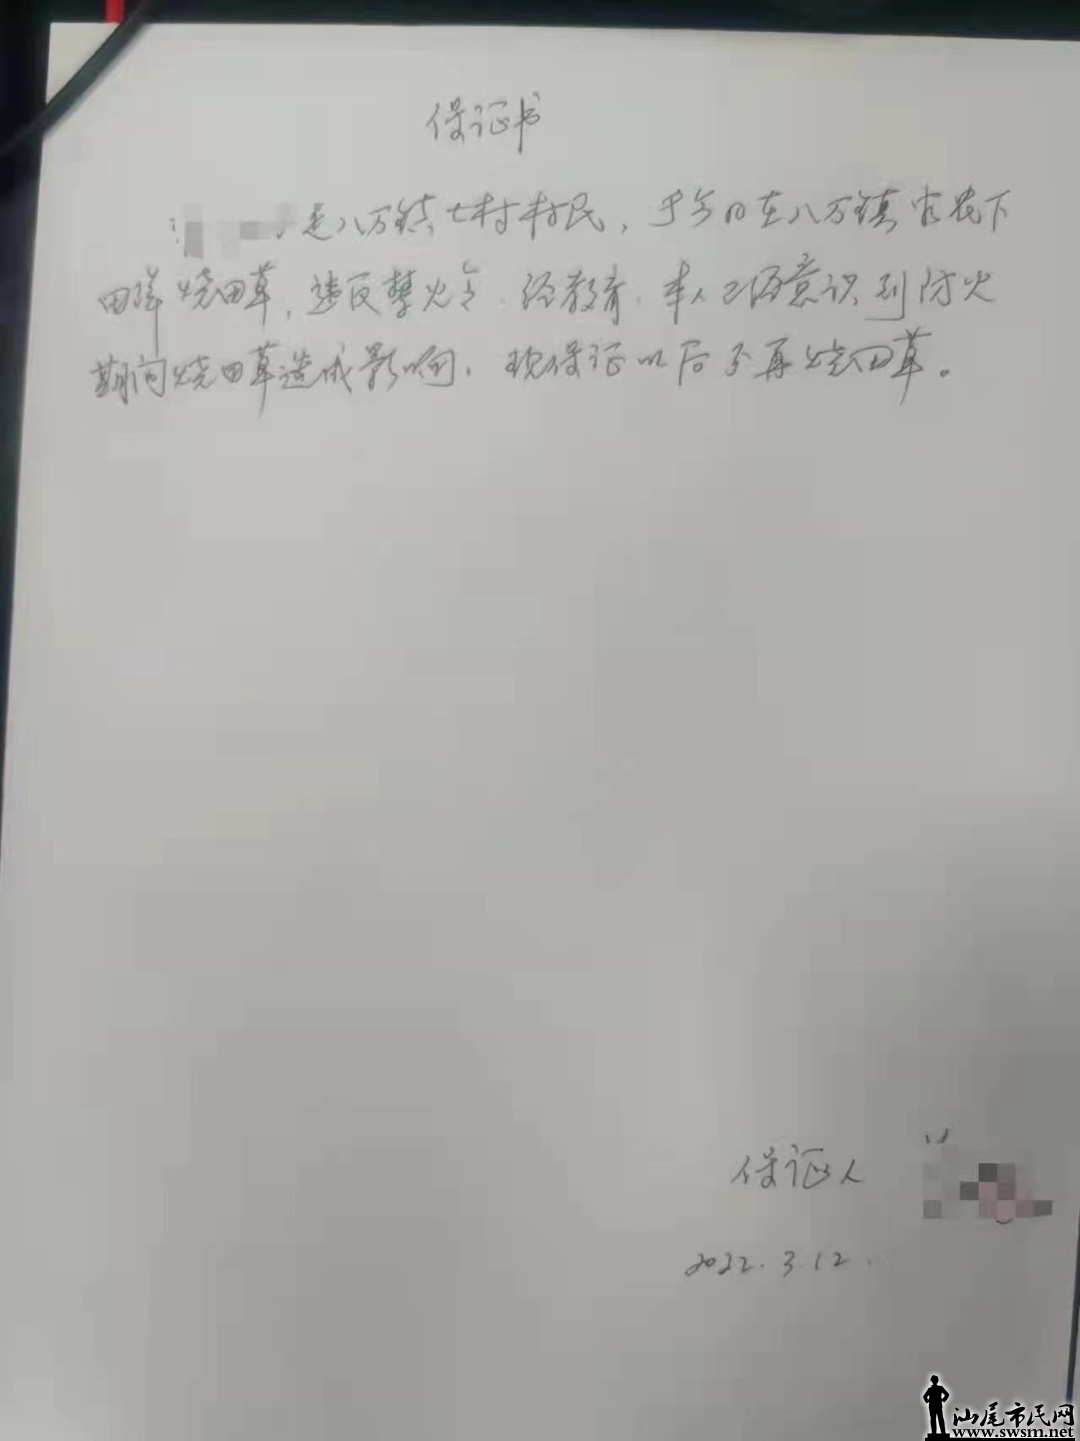 保证书
是八万镇上村村民，于今日在八万镇下
田洋烧田草，违反禁火令，经教育，本人已经意识到防火
期间烧田草造成影响，现保证以后不再烧田草。
保证人
2022.3.12
汕尾市民网
www.swsm.net